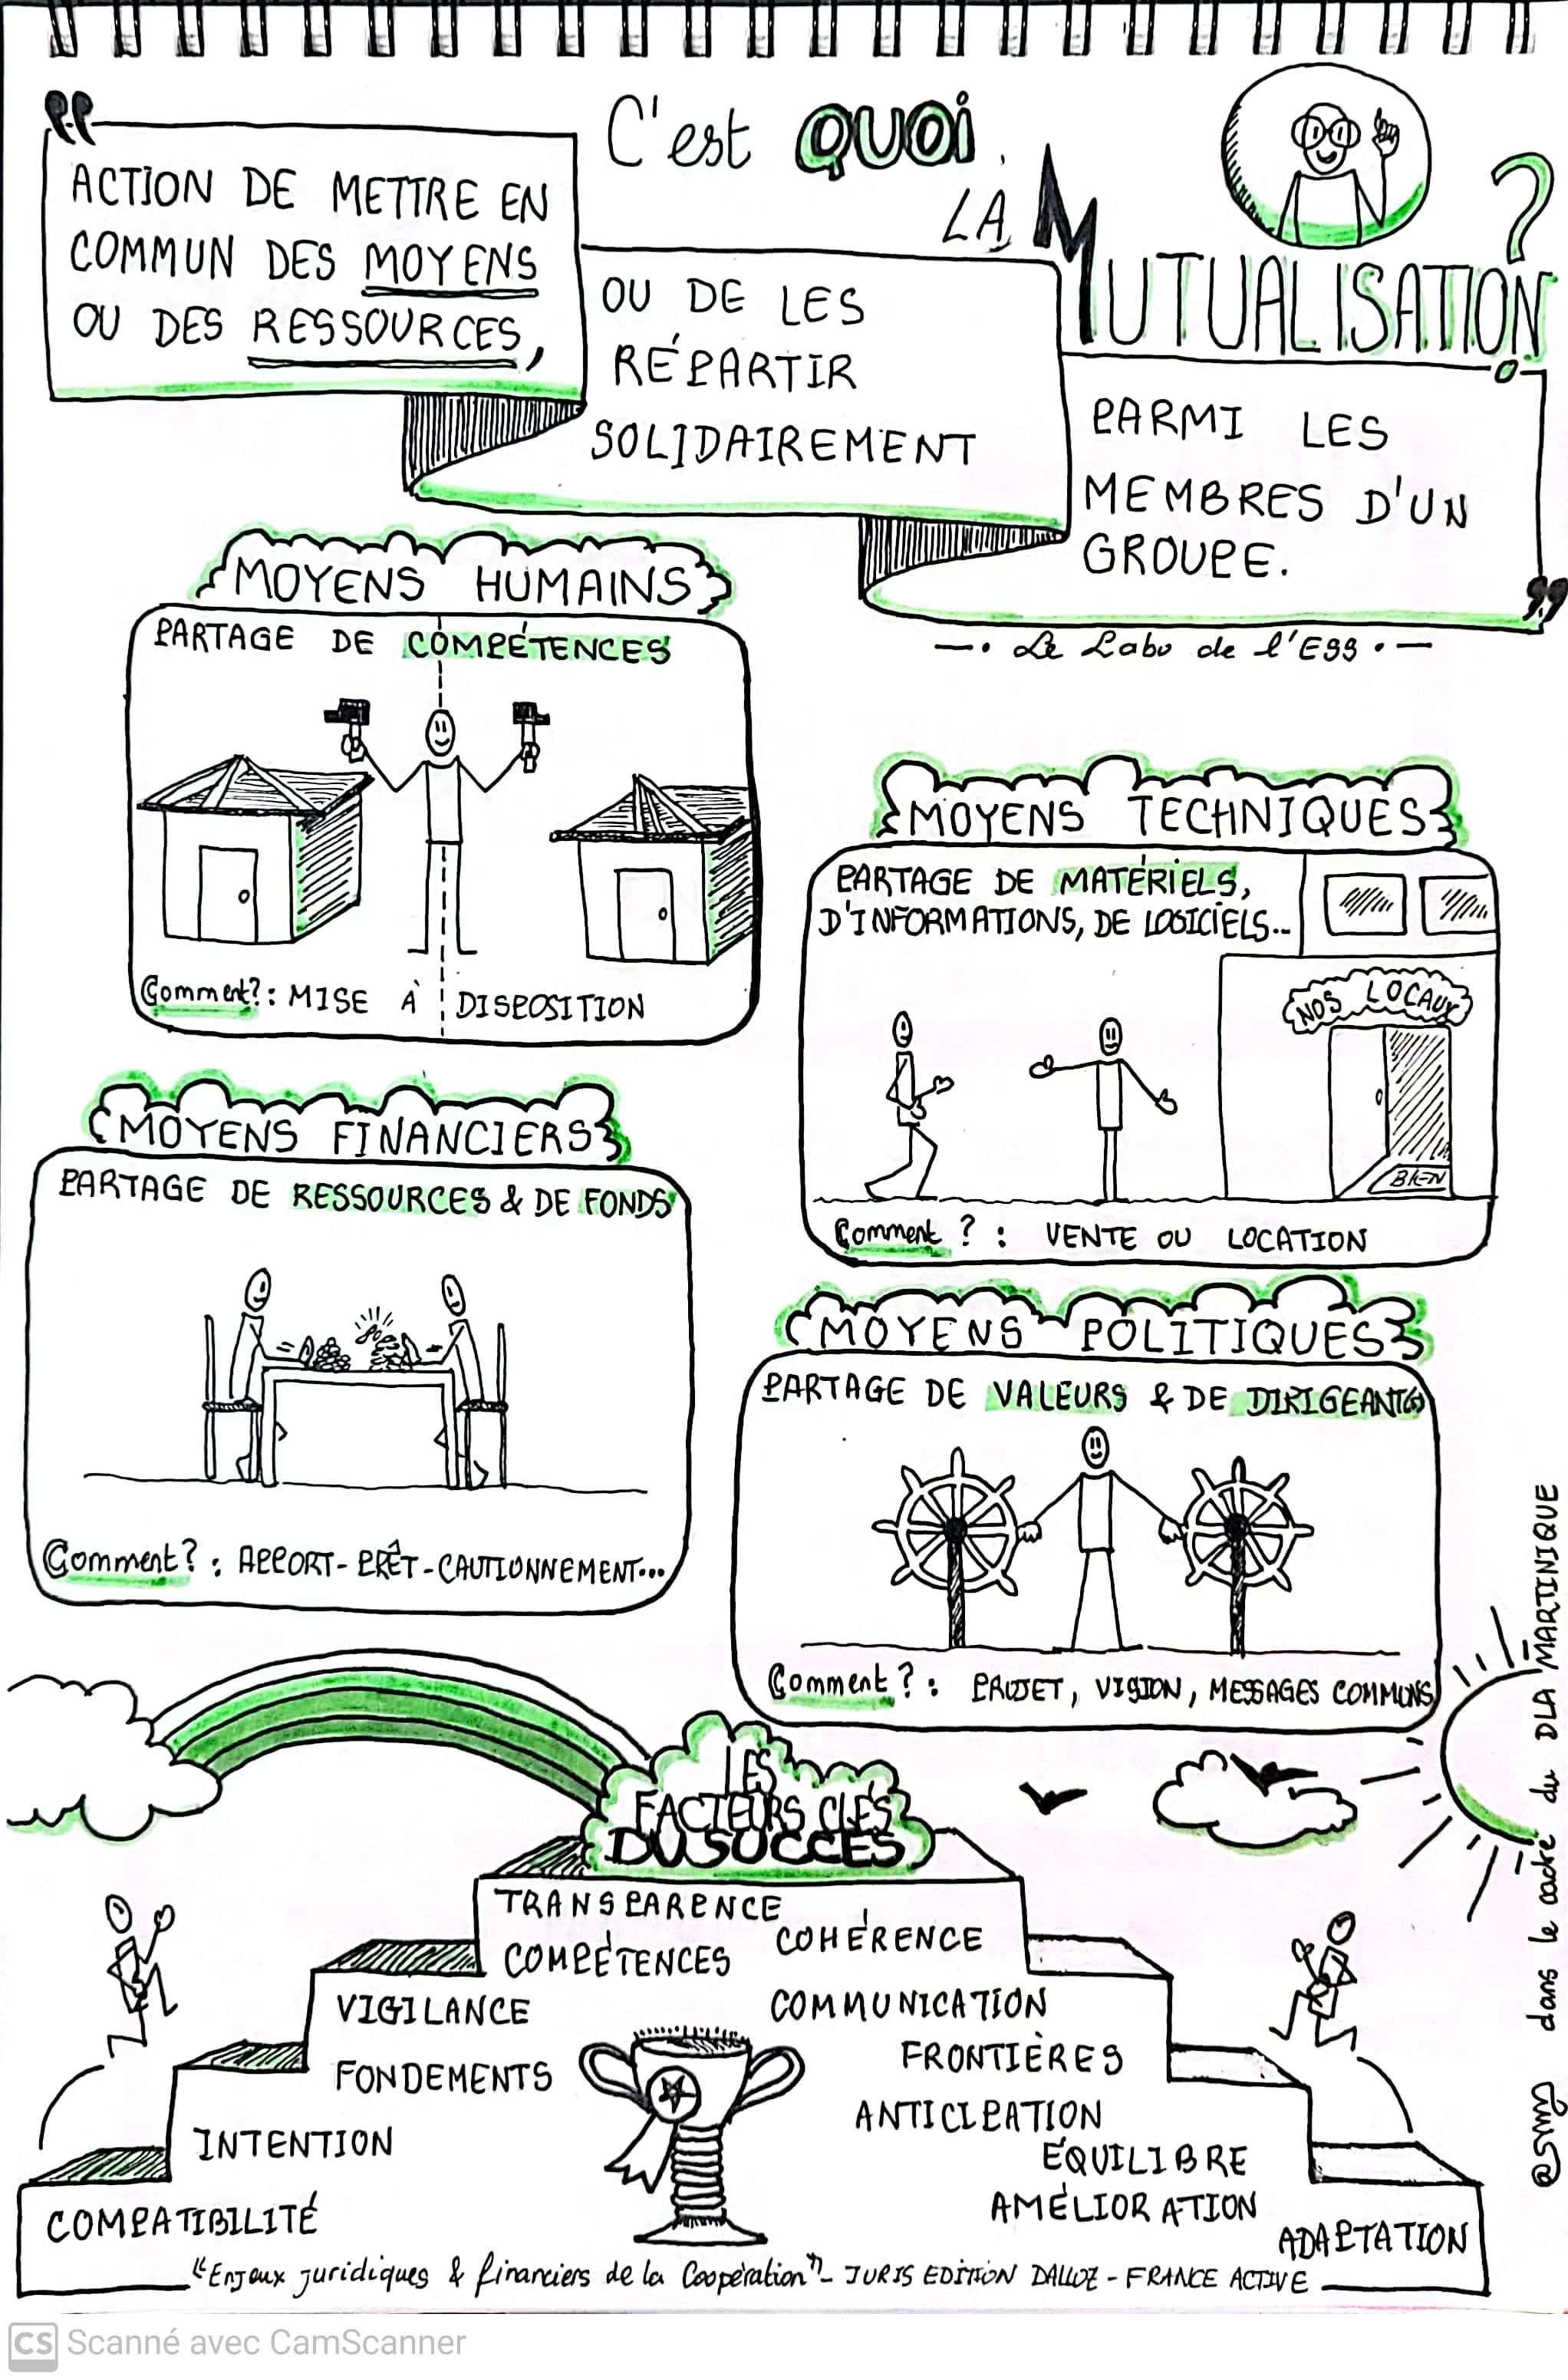 C'est QUOI
LA MUTUALISATION ?
"ACTION DE METTRE EN
COMMUN DES MOYENS
OU DES RESSOURCES,
OU DE LES
RÉPARTIR
SOLIDAIREMENT
PARMI LES
MEMBRES D'UN
GROUPE."
Le Labo de l'ESS
MOYENS HUMAINS
PARTAGE DE COMPÉTENCES
Comment? : MISE À DISPOSITION
MOYENS TECHNIQUES
PARTAGE DE MATÉRIELS,
D'INFORMATIONS, DE LOGICIELS...
NOS LOCAUX
BIEN
Comment ? : VENTE OU LOCATION
MOYENS FINANCIERS
PARTAGE DE RESSOURCES & DE FONDS
Comment? : APPORT - PRÊT - CAUTIONNEMENT...
MOYENS POLITIQUES
PARTAGE DE VALEURS & DE DIRIGEANT(S)
Comment ? : PROJET, VISION, MESSAGES COMMUNS
LES
FACTEURS CLÉS
DU SUCCÈS
TRANSPARENCE
COHÉRENCE
COMPÉTENCES
VIGILANCE
COMMUNICATION
FRONTIÈRES
FONDEMENTS
ANTICIPATION
INTENTION
ÉQUILIBRE
AMÉLIORATION
COMPATIBILITÉ
ADAPTATION
"Enjeux juridiques & financiers de la Coopération" - JURIS EDITION DALLOZ - FRANCE ACTIVE
dans le cadre du DLA MARTINIQUE
CS Scanné avec CamScanner